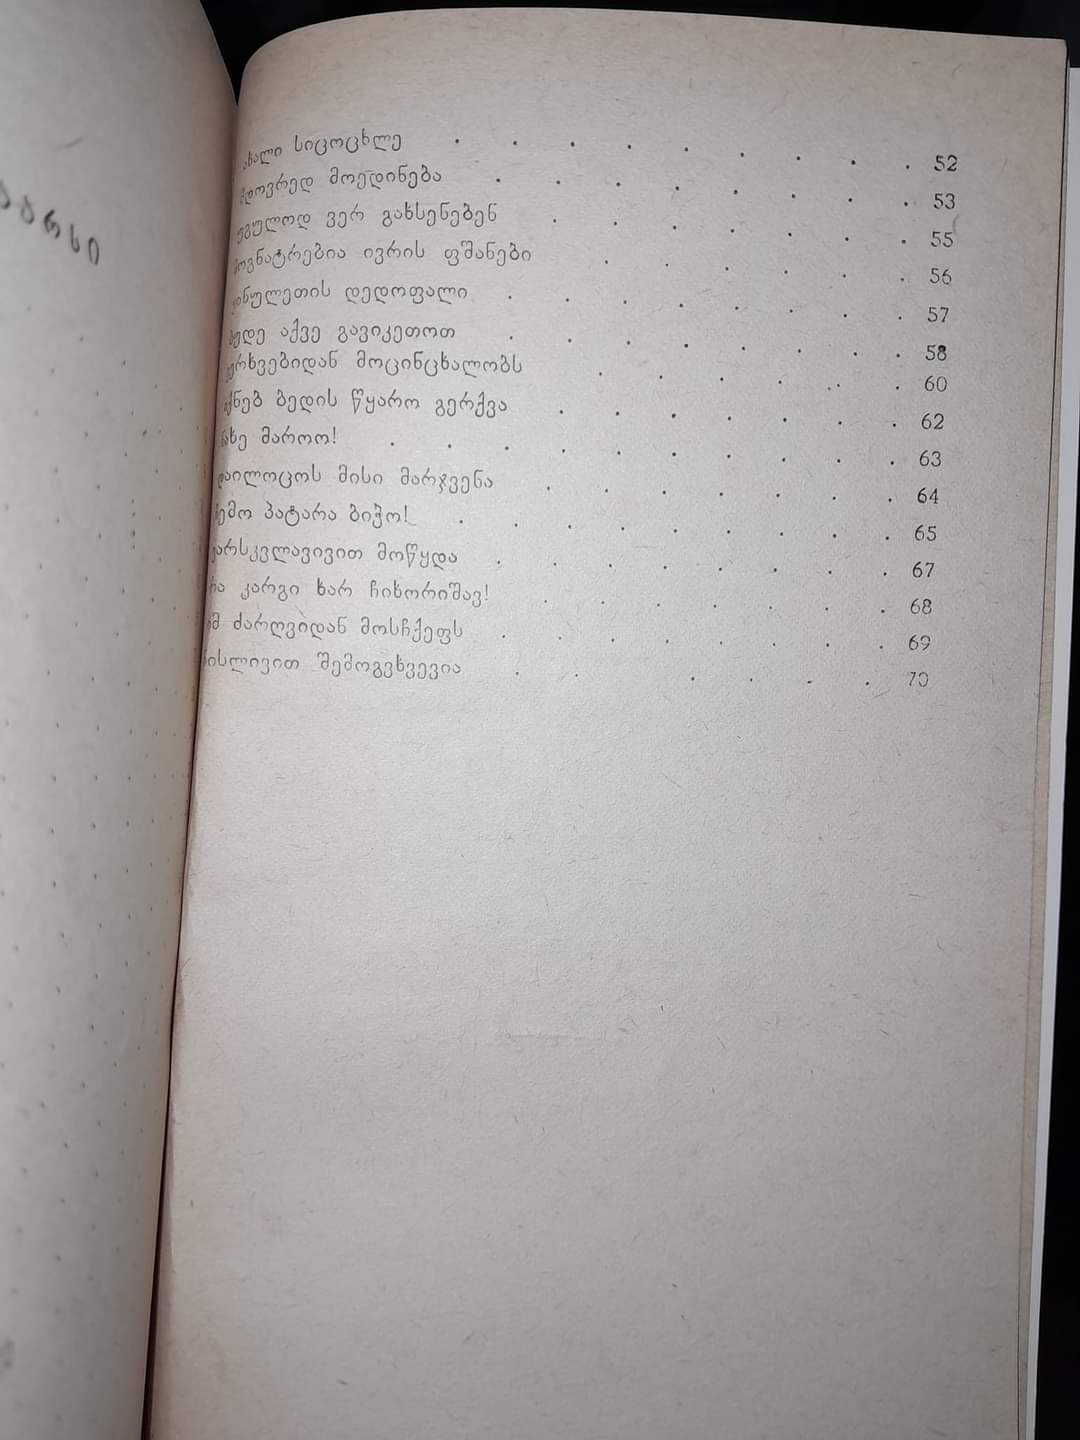 ახალი სიცოცხლე . . . . . . . . 52
მდოვრედ მოედინება . . . . . . . 53
უგულოდ ვერ გახსენებენ . . . . . . 55
მოგნატრებია ივრის ფშანები . . . . . 56
ყინულეთის დედოფალი . . . . . . . 57
ბუდე აქვე გავიკეთოთ . . . . . . . 58
ვერხვებიდან მოცინცხალობს . . . . . 60
იქნებ ბედის წყარო გერქვა . . . . . . 62
ნახე მაროო! . . . . . . . . . 63
დაილოცოს მისი მარჯვენა . . . . . . 64
ჩემო პატარა ბიჭო! . . . . . . . . 65
ვარსკვლავივით მოწყდა . . . . . . . 67
რა კარგი ხარ ჩიხორიშავ! . . . . . . 68
იმ ძარღვიდან მოსჩქეფს . . . . . . . 69
ნისლივით შემოგვხვევია . . . . . . 70